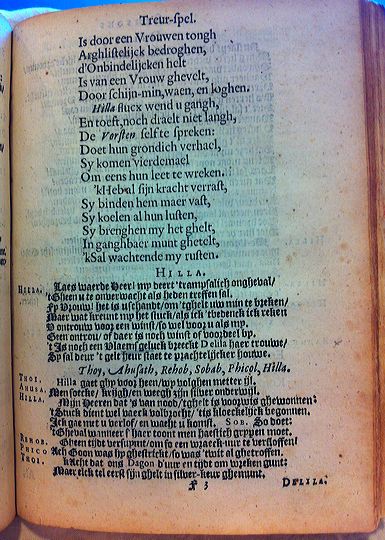 Treur-spel.
Is door een Vrouwen tongh
Arghlistelijck bedroghen,
d'Onbindelijcken helt
Is van een Vrouw ghevelt,
Door schijn-min, waen, en loghen.
Hilla flucx wend u gangh,
En toeft, noch draelt niet langh,
De Vorsten self te spreken:
Doet hun grondich verhael,
Sy komen vierdemael
Om eens hun leet te wreken.
'kHeb al sijn kracht verrast,
Sy binden hem maer vast,
Sy koelen al hun lusten,
Sy brenghen my het ghelt,
In gangbaer munt ghetelt,
'kSal wachtende my rusten.
HILLA.
HILLA. Laes waerde Heer! my deert 'trampsalich ongheval/
'tGheen u te onverwacht als heden treffen sal.
Fy Vrouw! het is u schandt/ om 'tghelt uw min te breken/
Maer wat kreunt my het stuck/ als ick 'tbedenck ick reken
D ontrouw voor een winst/ so wel voor u als my.
Geen ontrou/ of daer is noch winst of voordeel by.
't Is noch een Vlaems geluck breeckt Delila haer trouwe/
Sy sal deur 't gelt heur staet te prachtelijcker houwe.
Thoy, Ahusath, Rehob, Sobab, Phicol, Hilla.
THOI. Hilla gaet ghy voor heen/ wy volghen metter ijl.
AHUSA. Men soecke/ krijgh/ en weegh zijn silver onderwijl.
HILLA. Mijn Heeren dat 's van nood/ tghelt is voorwis ghewonnen:
'tStuck dient wel waeck volbrocht/ 'tis kloeckelijck begonnen.
Ick gae met u verlof/ en wacht u komst. SOB. So doet:
'tGheval wanneer 's haer toont men haestich grypen moet.
REHOB. Gheen tijdt versuymt/ om so een wraeck-uur te verliesen!
PHICO Ach Goon was hy ghestrickt/ so was 'twit al ghetroffen.
THOI. kAcht dat ons Dagon d'uur en tijdt om wreken gunt:
Maer elck tel eerst sijn ghelt in silver-keur ghemunt.
F 3
DELILA.